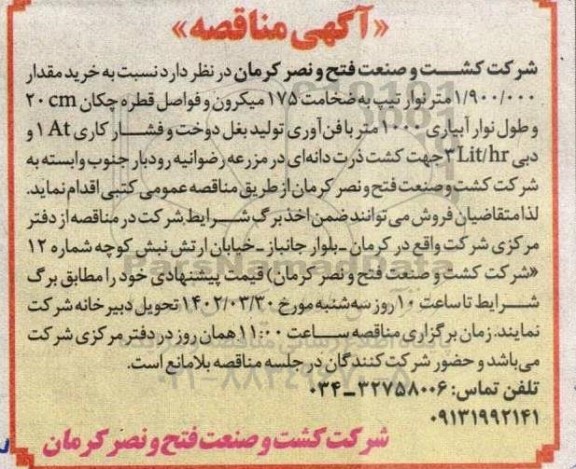 «آگهی مناقصه»
شرکت کشت و صنعت فتح و نصر کرمان در نظر دارد نسبت به خرید مقدار
۱/۹۰۰/۰۰۰ متر نوار تیپ به ضخامت ۱۷۵ میکرون و فواصل قطره چکان ۲۰ cm
و طول نوار آبیاری ۱۰۰۰ متر با فن آوری تولید بغل دوخت و فشار کاری ۱ At و
دبی ۳ Lit/hr جهت کشت ذرت دانه‌ای در مزرعه رضوانیه رودبار جنوب وابسته به
شرکت کشت و صنعت فتح و نصر کرمان از طریق مناقصه عمومی کتبی اقدام نماید.
لذا متقاضیان فروش می توانند ضمن اخذ برگ شرایط شرکت در مناقصه از دفتر
مرکزی شرکت واقع در کرمان - بلوار جانباز - خیابان ارتش نبش کوچه شماره ۱۲
«شرکت کشت و صنعت فتح و نصر کرمان) قیمت پیشنهادی خود را مطابق برگ
شرایط تا ساعت ۱۰ روز سه شنبه مورخ ۱۴۰۲/۰۳/۳۰ تحویل دبیرخانه شرکت
نمایند. زمان برگزاری مناقصه ساعت ۱۱:۰۰ همان روز در دفتر مرکزی شرکت
می‌باشد و حضور شرکت کنندگان در جلسه مناقصه بلامانع است.
تلفن تماس: ۳۲۷۵۸۰۰۶-۰۳۴
۰۹۱۳۱۹۹۲۱۴۱
شرکت کشت و صنعت فتح و نصر کرمان